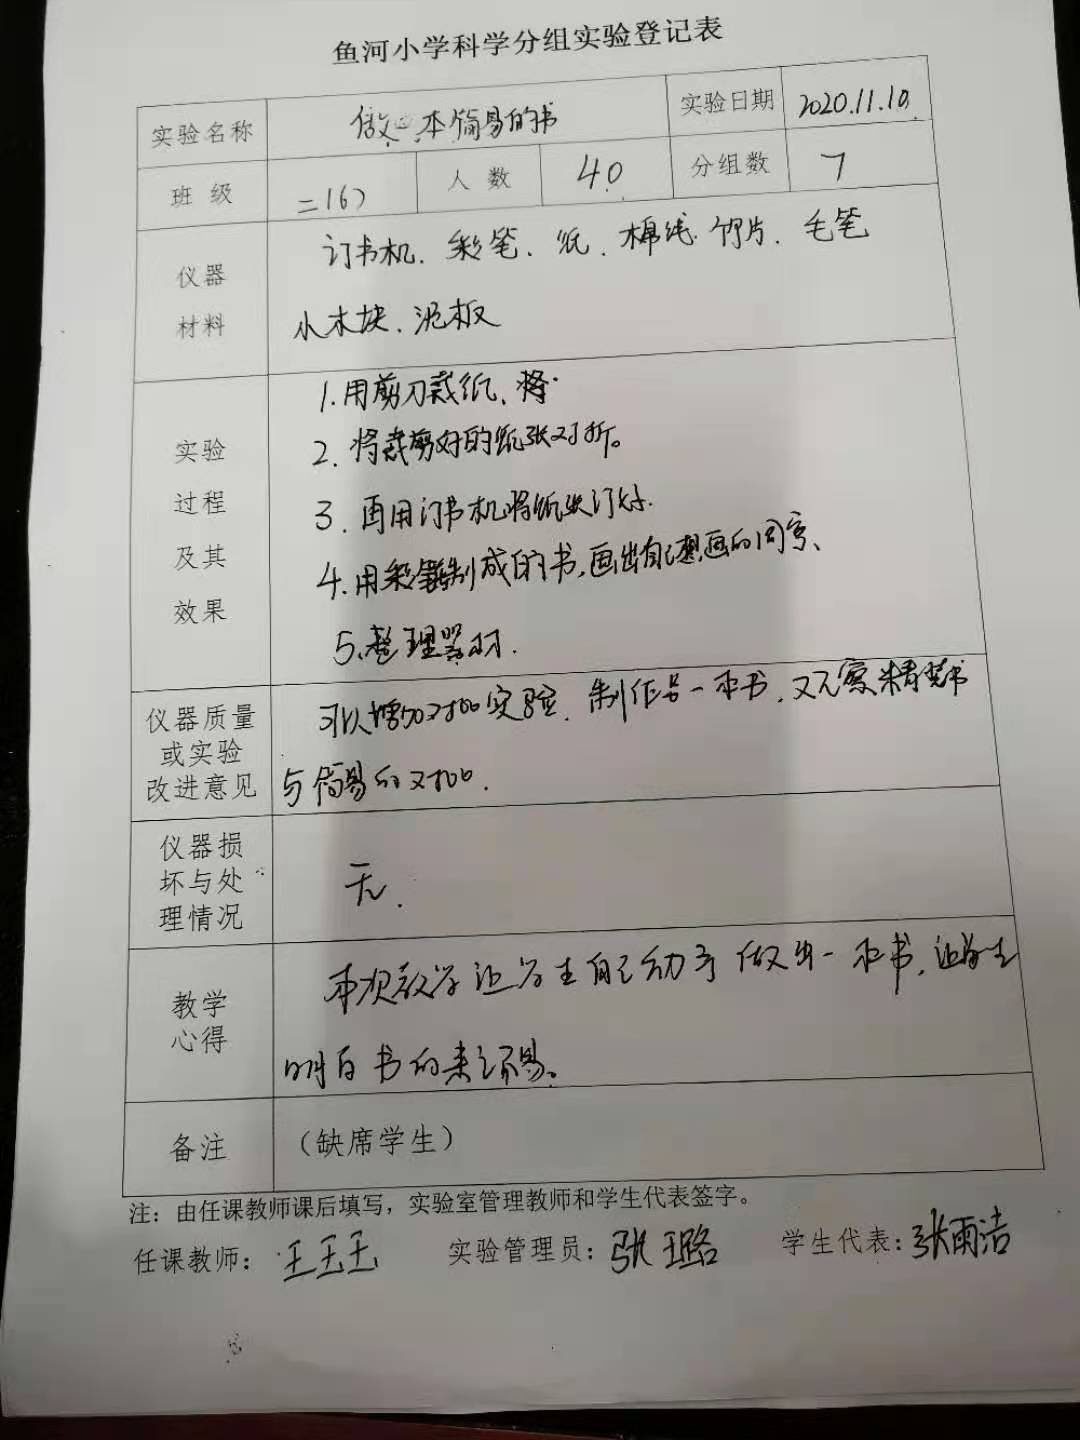 鱼河小学科学分组实验登记表
实验名称 做一本简易的书 实验日期 2020.11.10
班级 二(6) 人数 40 分组数 7
仪器材料 订书机、彩笔、纸、棉线、竹片、毛笔
小木块、泥板
实验过程及其效果 1.用剪刀裁纸、将
2.将裁剪好的纸张对折。
3.再用订书机将纸张订好.
4.用彩笔制成的书,画出自己想画的内容、
5.整理器材.
仪器质量或实验改进意见 可以增加对比实验.制作另一本书,观察精装书
与简易的对比.
仪器损坏与处理情况 无.
教学心得 本次教学让学生自己动手做出一本书,让学生
明白书的来之不易。
备注 (缺席学生)
注:由任课教师课后填写,实验室管理教师和学生代表签字。
任课教师: 王玉玉 实验管理员: 张璐 学生代表: 张雨洁